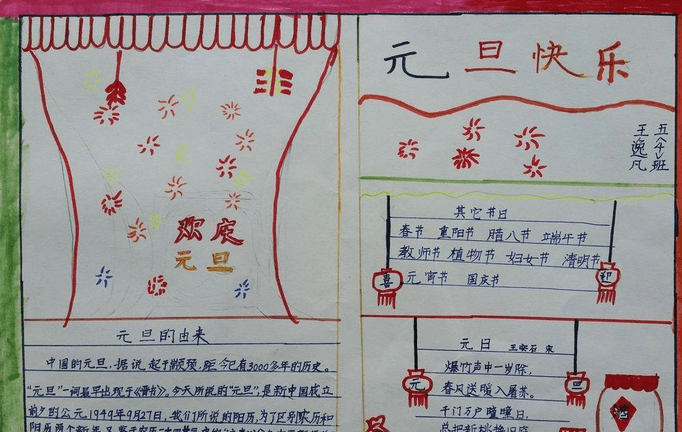 欢庆
元旦
元旦的由来
中国的元旦，据说起于颛顼，距今已有3000多年的历史。
"元旦"一词最早出现于《晋书》。今天所说的"元旦"，是新中国成立
前夕的公元1949年9月27日，我们所说的阳历，为了区别农历和
阳历两个新年，又鉴于农历二十四节气
元旦快乐
五〈4〉班
王逸凡
其它节日
春节 重阳节 腊八节 端午节
教师节 植物节 妇女节 清明节
元宵节 国庆节
喜
迎
元日 王安石 宋
爆竹声中一岁除，
春风送暖入屠苏。
千门万户曈曈日，
总把新桃换旧符
元
旦
酒